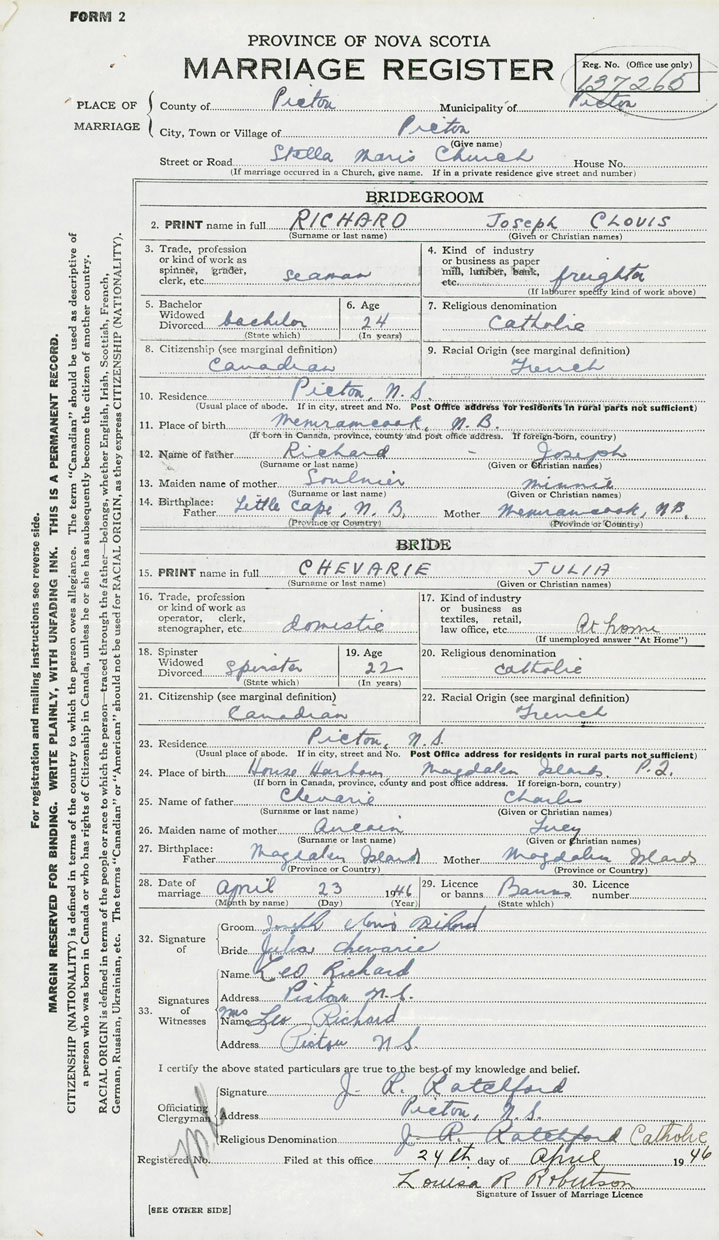 FORM 2
PROVINCE OF NOVA SCOTIA
MARRIAGE REGISTER
Reg. No. (Office use only)
137265
PLACE OF MARRIAGE
County of Pictou Municipality of Pictou
City, Town or Village of Pictou
(Give name)
Street or Road Stella Maris Church House No.
(If marriage occurred in a Church, give name. If in a private residence give street and number)
BRIDEGROOM
2. PRINT name in full RICHARD Joseph CLOVIS
(Surname or last name) (Given or Christian names)
3. Trade, profession or kind of work as spinner, grader, clerk, etc. seaman
4. Kind of industry or business as paper mill, lumber, bank, etc. freighter
(If labourer specify kind of work above)
5. Bachelor Widowed Divorced bachelor
(State which)
6. Age 24
(In years)
7. Religious denomination
Catholic
8. Citizenship (see marginal definition)
Canadian
9. Racial Origin (see marginal definition)
French
10. Residence Pictou, N.S.
(Usual place of abode. If in city, street and No. Post Office address for residents in rural parts not sufficient)
11. Place of birth Memramcook, N.B.
(If born in Canada, province, county and post office address. If foreign-born, country)
12. Name of father Richard - Joseph
(Surname or last name) (Given or Christian names)
13. Maiden name of mother Soulnier Minnie
(Surname or last name) (Given or Christian names)
14. Birthplace:
Father Little Cape, N.B. Mother Memramcook, NB.
(Province or Country) (Province or Country)
BRIDE
15. PRINT name in full CHEVARIE JULIA
(Surname or last name) (Given or Christian names)
16. Trade, profession or kind of work as operator, clerk, stenographer, etc domestic
17. Kind of industry or business as textiles, retail, law office, etc. At home
(If unemployed answer "At Home")
18. Spinster Widowed Divorced Spinster
(State which)
19. Age 22
(In years)
20. Religious denomination
Catholic
21. Citizenship (see marginal definition)
Canadian
22. Racial Origin (see marginal definition)
French
23. Residence Pictou, N.S.
(Usual place of abode. If in city, street and No. Post Office address for residents in rural parts not sufficient)
24. Place of birth House Harbour Magdalen Islands, P.Q.
(If born in Canada, province, county and post office address. If foreign-born, country)
25. Name of father Chevarie Charles
(Surname or last name) (Given or Christian names)
26. Maiden name of mother Aucoin Lucy
(Surname or last name) (Given or Christian names)
27. Birthplace:
Father Magdalen Island Mother Magdalen Islands
(Province or Country) (Province or Country)
28. Date of marriage April 23 1946
(Month by name) (Day) (Year)
29. Licence or banns Banns
(State which)
30. Licence number
32. Signature of
Groom Joseph Clovis Richard
Bride Julia Chevarie
33. Signatures of Witnesses
Name Leo Richard
Address Pictou N.S.
Name Mrs Leo Richard
Address Pictou N.S.
I certify the above stated particulars are true to the best of my knowledge and belief.
Officiating Clergyman
Signature J. R. Ratchford
Address Pictou, N.S.
Religious Denomination J. R. Ratchford Catholic
Registered No. Filed at this office 24th day of April 1946
Louisa R Robertson
Signature of Issuer of Marriage Licence
[SEE OTHER SIDE]
For registration and mailing instructions see reverse side.
MARGIN RESERVED FOR BINDING. WRITE PLAINLY, WITH UNFADING INK. THIS IS A PERMANENT RECORD.
CITIZENSHIP (NATIONALITY) is defined in terms of the country to which the person owes allegiance. The term "Canadian" should be used as descriptive of
a person who was born in Canada or who has rights of Citizenship in Canada, unless he or she has subsequently become the citizen of another country.
RACIAL ORIGIN is defined in terms of the people or race to which the person—traced through the father—belongs, whether English, Irish, Scottish, French,
German, Russian, Ukrainian, etc. The terms "Canadian" or "American" should not be used for RACIAL ORIGIN, as they express CITIZENSHIP (NATIONALITY).